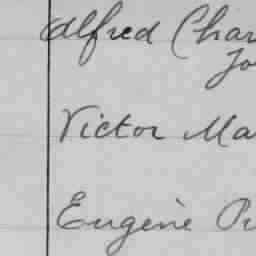 Alfred Char
Jo
Victor Ma
Eugène Pr